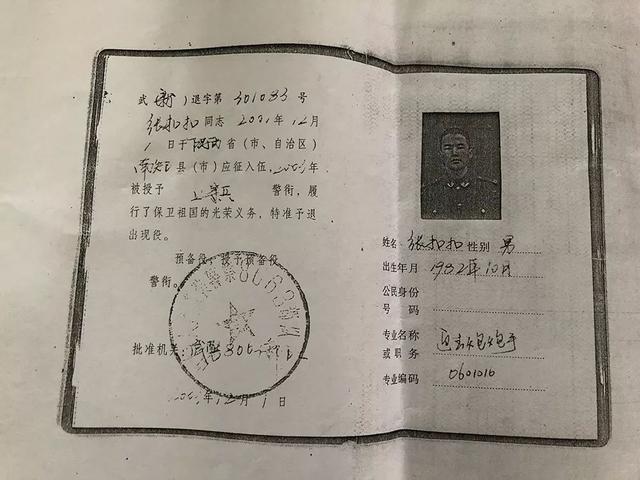 武（新）退字第 301033 号
张扣扣同志 2001年12月
1日于陕西省（市、自治区）
南郑县（市）应征入伍，2003年
被授予 上等兵 警衔，履
行了保卫祖国的光荣义务，特准予退
出现役。
预备役：授予预备役
警衔。
批准机关：
年12月1日
姓名 张扣扣 性别 男
出生年月 1982年10月
公民身份
号 码
专业名称 迫击炮炮手
或职务
专业编码 0601010